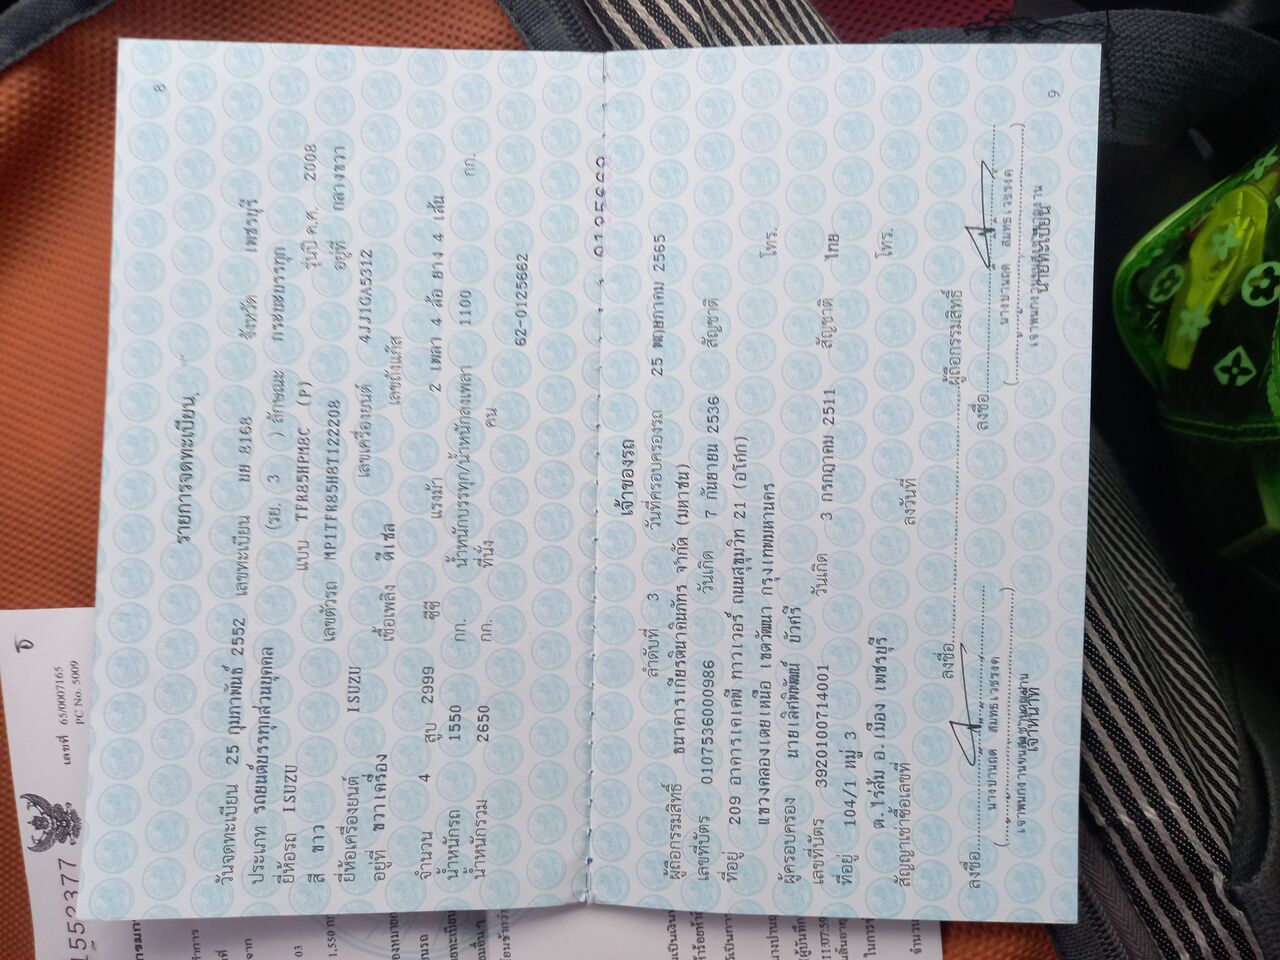 8
รายการจดทะเบียน
วันจดทะเบียน 25 กุมภาพันธ์ 2552 เลขทะเบียน บย 8168 จังหวัด เพชรบุรี
ประเภท รถยนต์บรรทุกส่วนบุคคล (รย. 3 ) ลักษณะ กระบะบรรทุก
ยี่ห้อรถ ISUZU แบบ TFR85HPM8C (P) รุ่นปี ค.ศ. 2008
สี ขาว เลขตัวรถ MP1TFR85H8T122208 อยู่ที่ กลางขวา
ยี่ห้อเครื่องยนต์ ISUZU เลขเครื่องยนต์ 4JJ1GA5312
อยู่ที่ ขวาเครื่อง เชื้อเพลิง ดีเซล เลขถังแก๊ส
จำนวน 4 สูบ 2999 ซีซี แรงม้า 2 เพลา 4 ล้อ ยาง 4 เส้น
น้ำหนักรถ 1550 กก. น้ำหนักบรรทุก/น้ำหนักลงเพลา 1100 กก.
น้ำหนักรวม 2650 กก. ที่นั่ง คน
62-0125662
เจ้าของรถ
ลำดับที่ 3 วันที่ครอบครองรถ 25 พฤษภาคม 2565
ผู้ถือกรรมสิทธิ์ ธนาคารเกียรตินาคินภัทร จำกัด (มหาชน)
เลขที่บัตร 0107536000986 วันเกิด 7 กันยายน 2536 สัญชาติ
ที่อยู่ 209 อาคารเคเคพี ทาวเวอร์ ถนนสุขุมวิท 21 (อโศก)
แขวงคลองเตยเหนือ เขตวัฒนา กรุงเทพมหานคร โทร.
ผู้ครอบครอง นายเลิศพิพัฒน์ บัวศรี
เลขที่บัตร 3920100714001 วันเกิด 3 กรกฎาคม 2511 สัญชาติ ไทย
ที่อยู่ 104/1 หมู่ 3
ต.ไร่ส้ม อ.เมือง เพชรบุรี โทร.
สัญญาเช่าซื้อเลขที่ ลงวันที่
ลงชื่อ ผู้ถือกรรมสิทธิ์
ลงชื่อ ลงชื่อ
เจ้าหน้าที่ นายทะเบียน
9
1552377
เลขที่ 65/0007165
PC No. 5009
03
1,550 กก